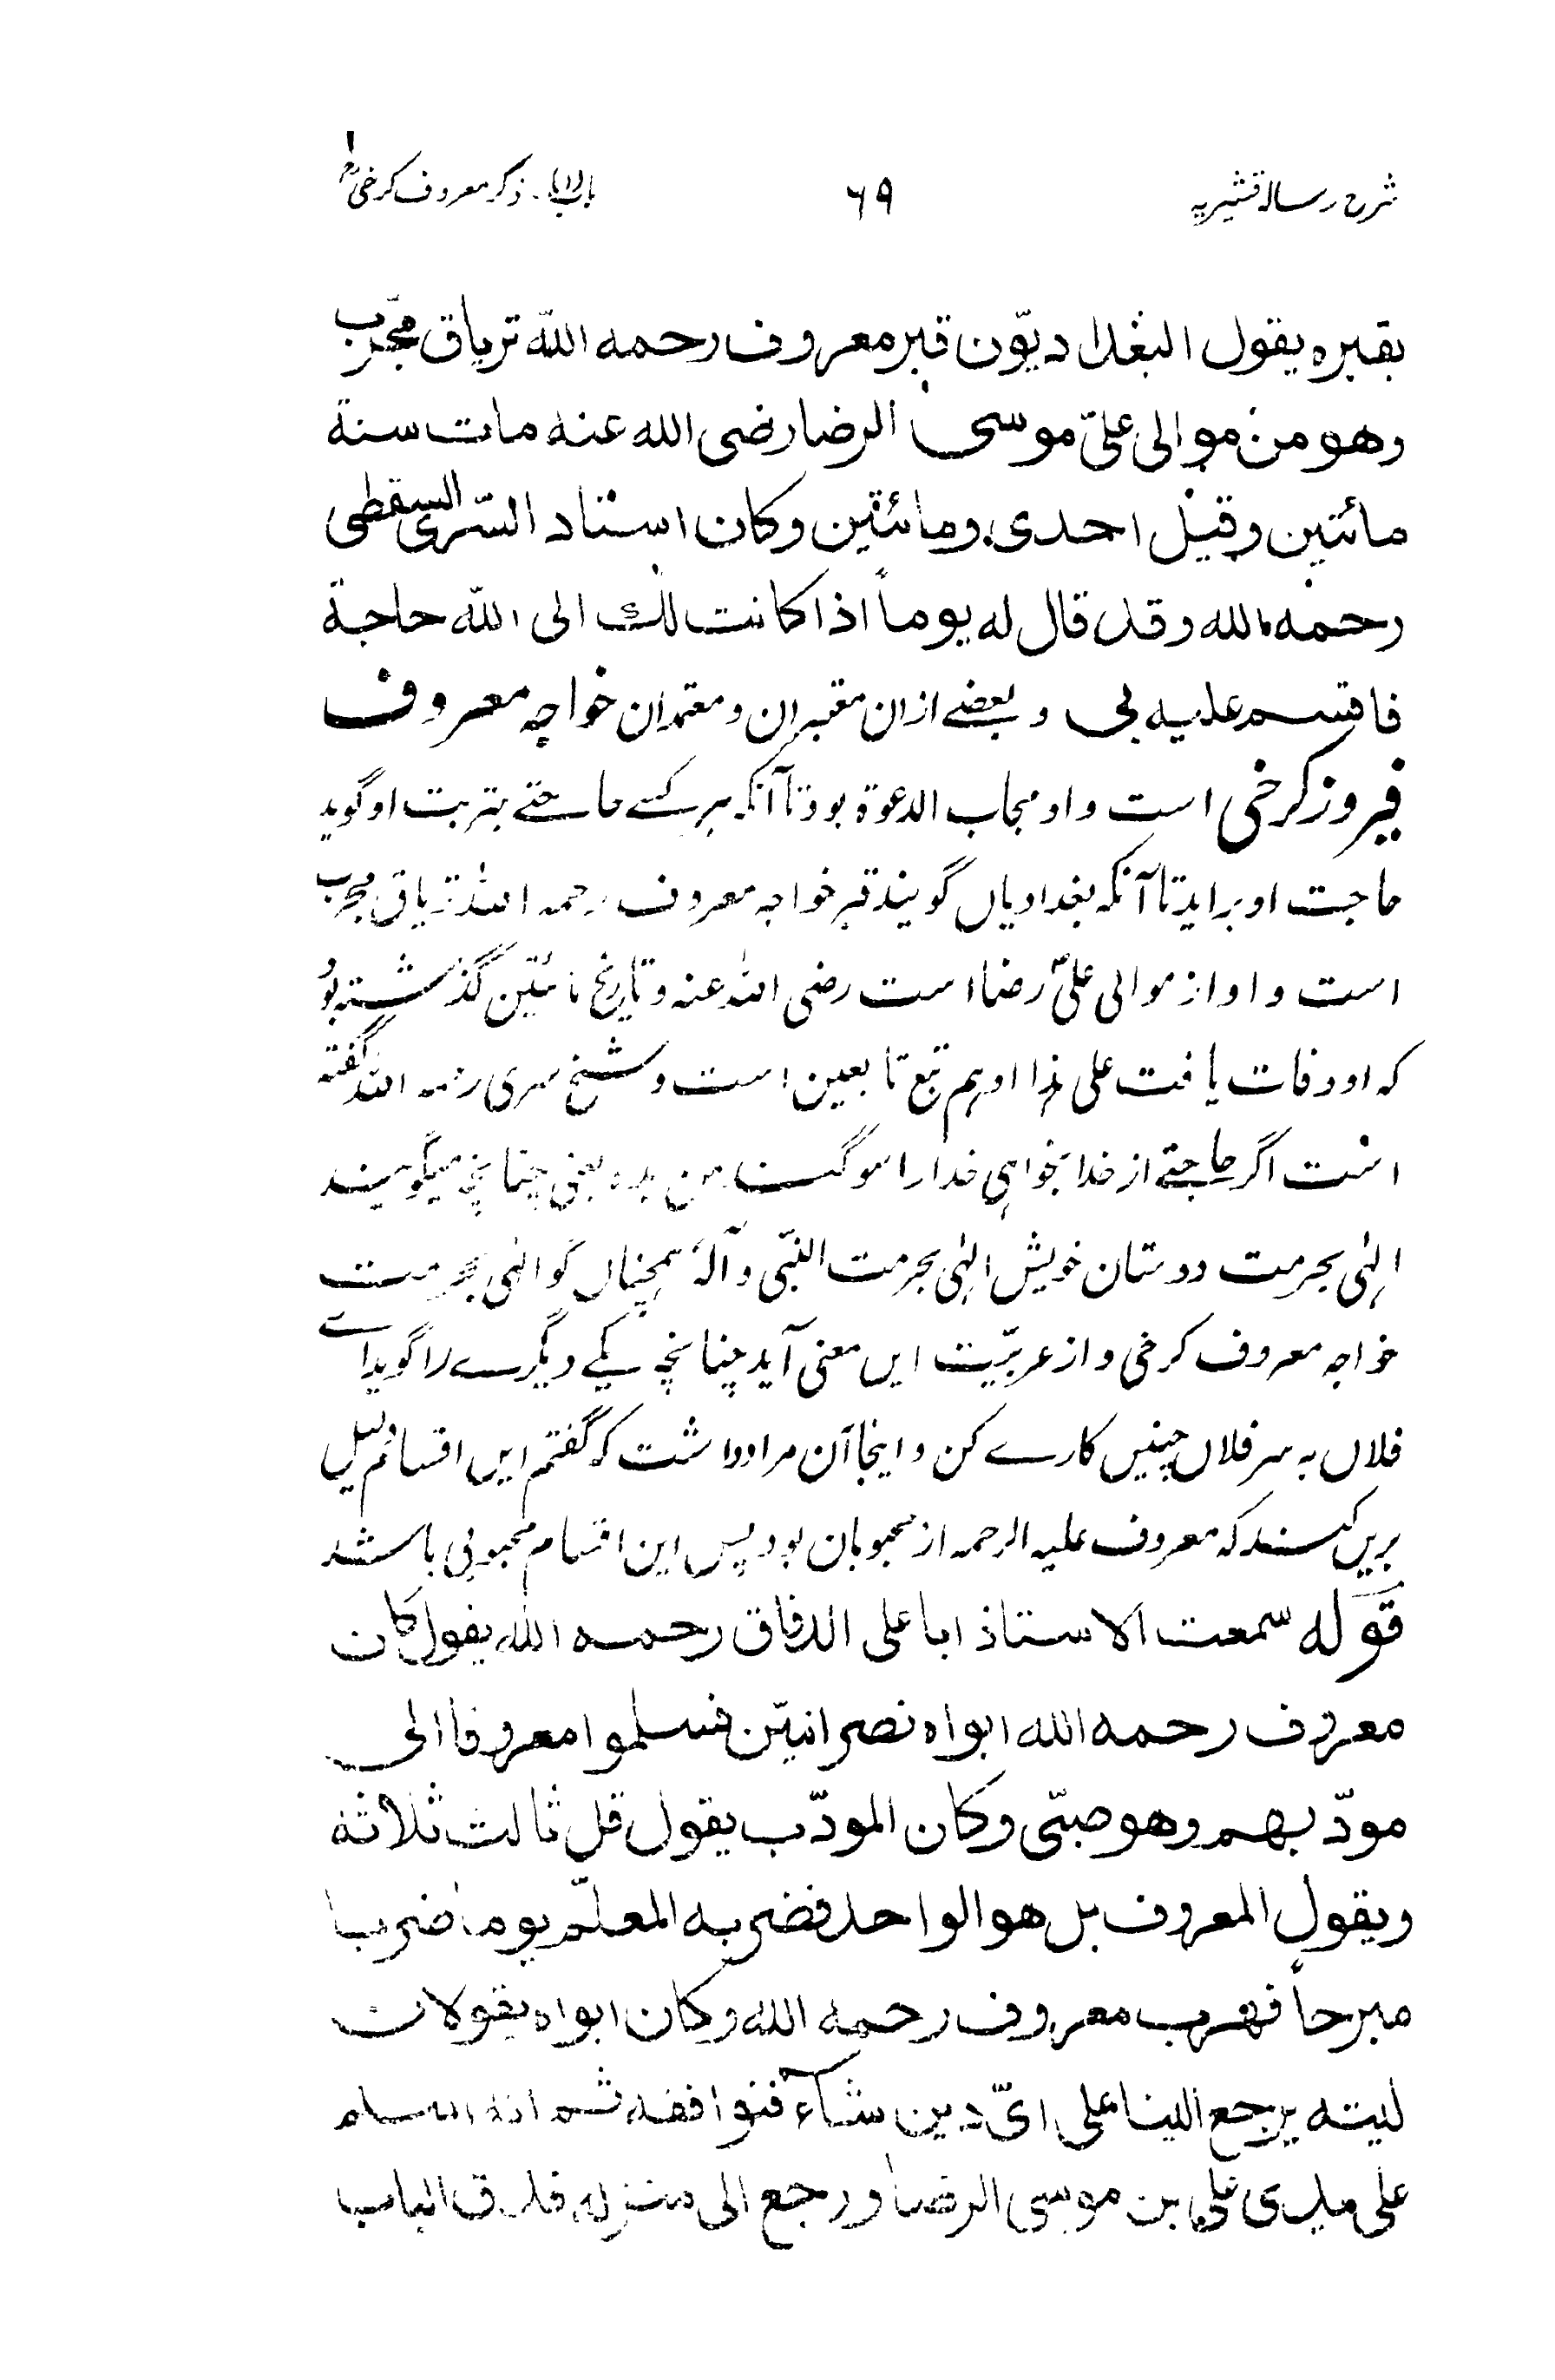 شرح رسالہ قشیریہ ۶۹ باب اولیا۔ ذکر معروف کرخیؒ
بقبرہ یقول البغدادیّون قبر معروف رحمه اللہ تریاق مجرّب
وھو من موالی علیّ موسی الرضا رضی الله عنه مات سنة
مائتین وقیل احدی ومائتین وکان استاد السّری السقطی
رحمه الله وقد قال له یوماً اذا کانت لك الی اللہ حاجة
فاقسم علیه بی و بعضے ازان معتبران و معتمدان خواجہ معروف
فیروز کرخی است واو مجاب الدعوة بود تا آنکہ ہر کسے حاجتے بتربت او گوید
حاجت او براید تا آنکہ بغدادیاں گویند قبر خواجہ معروف رحمہ اللہ تریاق مجرب
است و او از موالی علیؓ رضا است رضی اللہ عنہ و تاریخ مائتین گذشتہ بود
کہ او وفات یافت علی ہذا او ہم تبع تابعین است و شیخ سری رحمہ اللہ گفتہ
است اگر حاجتے از خدا بخواہی خدا را سوگند من بدہ یعنی چنانچہ میگویند
الہٰی بحرمت دوستان خویش الہٰی بحرمت النّبی و آلہٖ ہمچناں گو الہٰی بحرمت
خواجہ معروف کرخی و از عربیّت ایں معنی آید چنانچہ یکے دیگرے را گوید اے
فلاں بہ سر فلاں چنیں کارے کن و اینجا آن مراد داشت کہ گفتم ایں اقسام دلیل
بریں کسند کہ معروف علیہ الرحمہ از محبوبان بود پس این اقسام محبوبی باشد
قولہ سمعت الاستاذ ابا علی الدقاق رحمه الله یقول کان
معروف رحمه الله ابواہ نصرانیّن فسلموا معروفا الی
مودّبهم وهو صبیّ وکان المودّب یقول قل ثالث ثلاثة
ویقول المعروف بل هو الواحد فضربه المعلّم یوما ضربا
مبرحاً فهرب معروف رحمه الله وکان ابواہ یقولان
لیته یرجع الینا علی ایّ دین شآء فنوافقه ثم انه اسلم
علی یدی علی بن موسی الرضا ورجع الی منزله فدق الباب